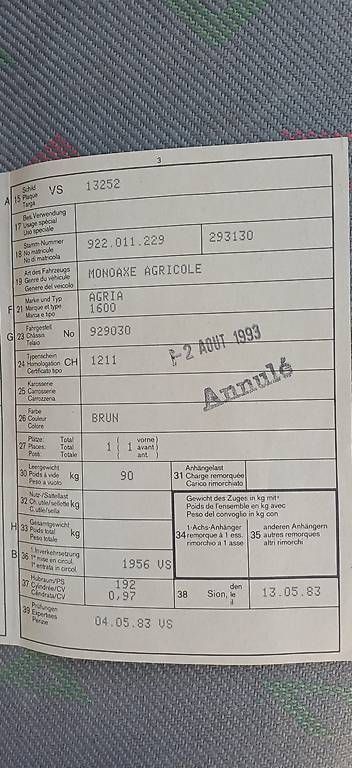 3
A 15 Schild Plaque Targa VS 13252
17 Bes. Verwendung Usage spécial Uso speciale
18 Stamm-Nummer No matricule No di matricola 922.011.229 293130
19 Art des Fahrzeugs Genre du véhicule Genere del veicolo MONOAXE AGRICOLE
F 21 Marke und Typ Marque et type Marca e tipo AGRIA 1600
G 23 Fahrgestell Châssis Telaio No 929030
24 Typenschein Homologation Certificato tipo CH 1211
- 2 AOUT 1993
Annulé
25 Karosserie Carrosserie Carrozzeria
26 Farbe Couleur Colore BRUN
27 Plätze: Total Places: Total Posti: Totale 1 ( 1 vorne avant ant. )
30 Leergewicht Poids à vide Peso a vuoto kg 90
31 Anhängelast Charge remorquée Carico rimorchiato
32 Nutz-/Sattellast Ch. utile/sellette C. utile/sella kg
Gewicht des Zuges in kg mit·
Poids de l'ensemble en kg avec
Peso del convoglio in kg con
H 33 Gesamtgewicht Poids total Peso totale kg
34 1-Achs-Anhänger remorque à 1 ess. rimorchio a 1 asse
35 anderen Anhängern autres remorques altri rimorchi
B 36 1. Inverkehrsetzung 1re mise en circul. 1a entrata in circol. 1956 VS
37 Hubraum/PS Cylindrée/CV Cilindrata/CV 192 0,97
38 Sion, den le il 13.05.83
39 Prüfungen Expertises Perizie 04.05.83 VS